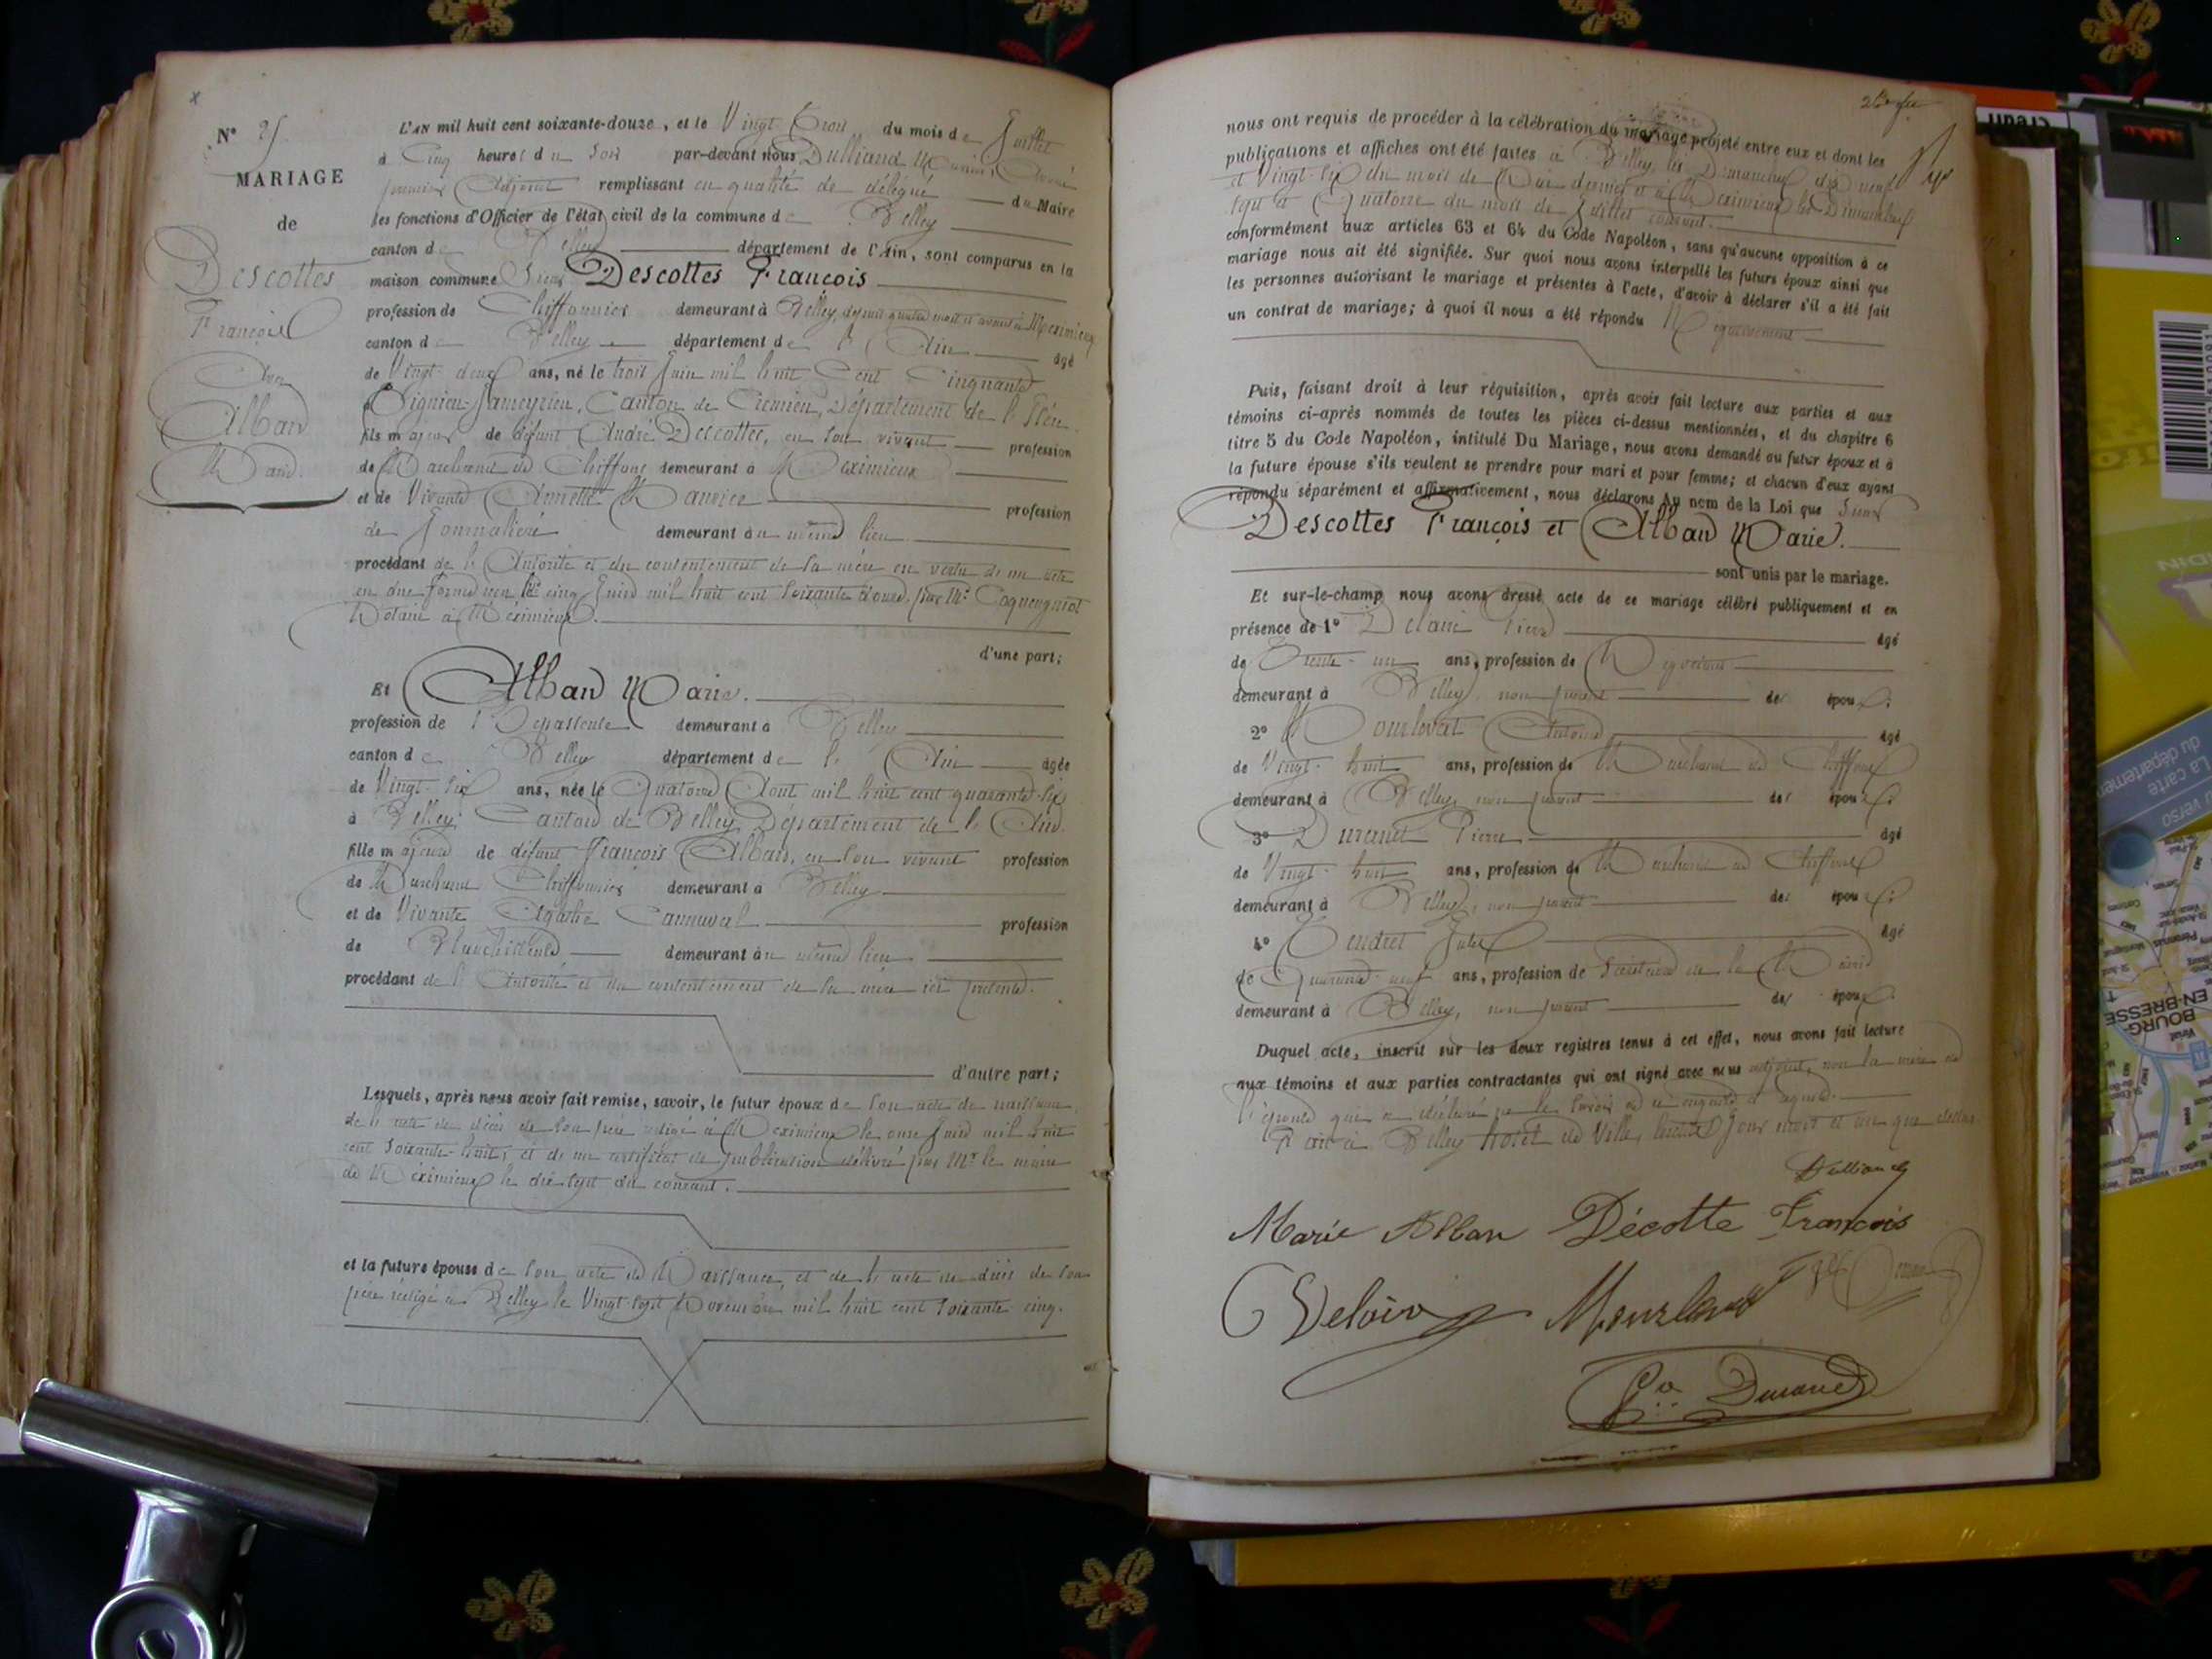 N° 25
MARIAGE
de
Descottes
François
Avec
Alban
Marie.
L'AN mil huit cent soixante-douze, et le Vingt Trois du mois de Juillet
à Cinq heures du Soir par-devant nous Dulliand
premier Adjoint remplissant en qualité de délégué du Maire
les fonctions d'Officier de l'état civil de la commune de Belley
canton de Belley département de l'Ain, sont comparus en la
maison commune Sieur Descottes François
profession de Chiffonnier demeurant à Belley, depuis quatre mois et avant à Meximieux
canton de Belley département de l'Ain âgé
de Vingt deux ans, né le trois Juin mil huit Cent Cinquante
à Tignieu-Jameyzieu, Canton de Crémieu, Département de l'Isère.
fils majeur de défunt André Descottes, en son vivant profession
de Marchand de Chiffons demeurant à Meximieux
et de Vivante Annette Maurice profession
de Journalière demeurant au même lieu
procédant de l'Autorité et du consentement de sa mère en vertu de un acte
en due forme reçu le cinq Juin mil huit cent Soixante douze, par Me Coqueugniot
Notaire à Meximieux.
d'une part;
Et Alban Marie.
profession de Repasseuse demeurant à Belley
canton de Belley département de l'Ain âgée
de Vingt-six ans, née le Quatorze Août mil huit cent quarante-six
à Belley Canton de Belley, Département de l'Ain.
fille majeure de défunt François Alban, en son vivant profession
de Marchand Chiffonnier demeurant à Belley
et de Vivante Agathe Cannaval profession
de Blanchisseuse demeurant au même lieu
procédant de l'Autorité et du consentement de sa mère ici présente.
d'autre part;
Lesquels, après nous avoir fait remise, savoir, le futur époux de son acte de naissance,
de l'acte de décès de son père rédigé à Meximieux le onze Juin mil huit
cent soixante-huit; et de un certificat de publication délivré par Mr le maire
de Meximieux le dix sept du courant.
et la future épouse de son acte de Naissance, et de l'acte de décès de son
père rédigé à Belley le Vingt-sept Novembre mil huit cent soixante cinq.
nous ont requis de procéder à la célébration du mariage projeté entre eux et dont les
publications et affiches ont été faites à Belley, les Dimanches dix neuf
et Vingt-six du mois de Mai dernier et à Meximieux les Dimanches
sept et Quatorze du mois de Juillet courant.
conformément aux articles 63 et 64 du Code Napoléon, sans qu'aucune opposition à ce
mariage nous ait été signifiée. Sur quoi nous avons interpellé les futurs époux ainsi que
les personnes autorisant le mariage et présentes à l'acte, d'avoir à déclarer s'il a été fait
un contrat de mariage; à quoi il nous a été répondu Négativement
Puis, faisant droit à leur réquisition, après avoir fait lecture aux parties et aux
témoins ci-après nommés de toutes les pièces ci-dessus mentionnées, et du chapitre 6
titre 5 du Code Napoléon, intitulé Du Mariage, nous avons demandé au futur époux et à
la future épouse s'ils veulent se prendre pour mari et pour femme; et chacun d'eux ayant
répondu séparément et affirmativement, nous déclarons au nom de la Loi que Sieur
Descottes François et Alban Marie.
sont unis par le mariage.
Et sur-le-champ nous avons dressé acte de ce mariage célébré publiquement et en
présence de 1° Deloire Pierre âgé
de Trente-un ans, profession de Négociant
demeurant à Belley, non parent des époux;
2° Mourlevat Antoine âgé
de Vingt-huit ans, profession de Marchand de Chiffons
demeurant à Belley, non parent des époux;
3° Durand Pierre âgé
de Vingt-huit ans, profession de Marchand de Chiffons
demeurant à Belley, non parent des époux;
4° Tendret Jules âgé
de Quarante-neuf ans, profession de Secrétaire de la Mairie
demeurant à Belley, non parent des époux.
Duquel acte, inscrit sur les deux registres tenus à cet effet, nous avons fait lecture
aux témoins et aux parties contractantes qui ont signé avec nous adjoint, non la mère de
l'épouse qui a déclaré ne le savoir de ce enquise et requise.
Fait à Belley hôtel de Ville, lesdits jour mois et an que dessus.
Dulliand
Marie Alban Décotte François
Deloire Mourlevat
Durand